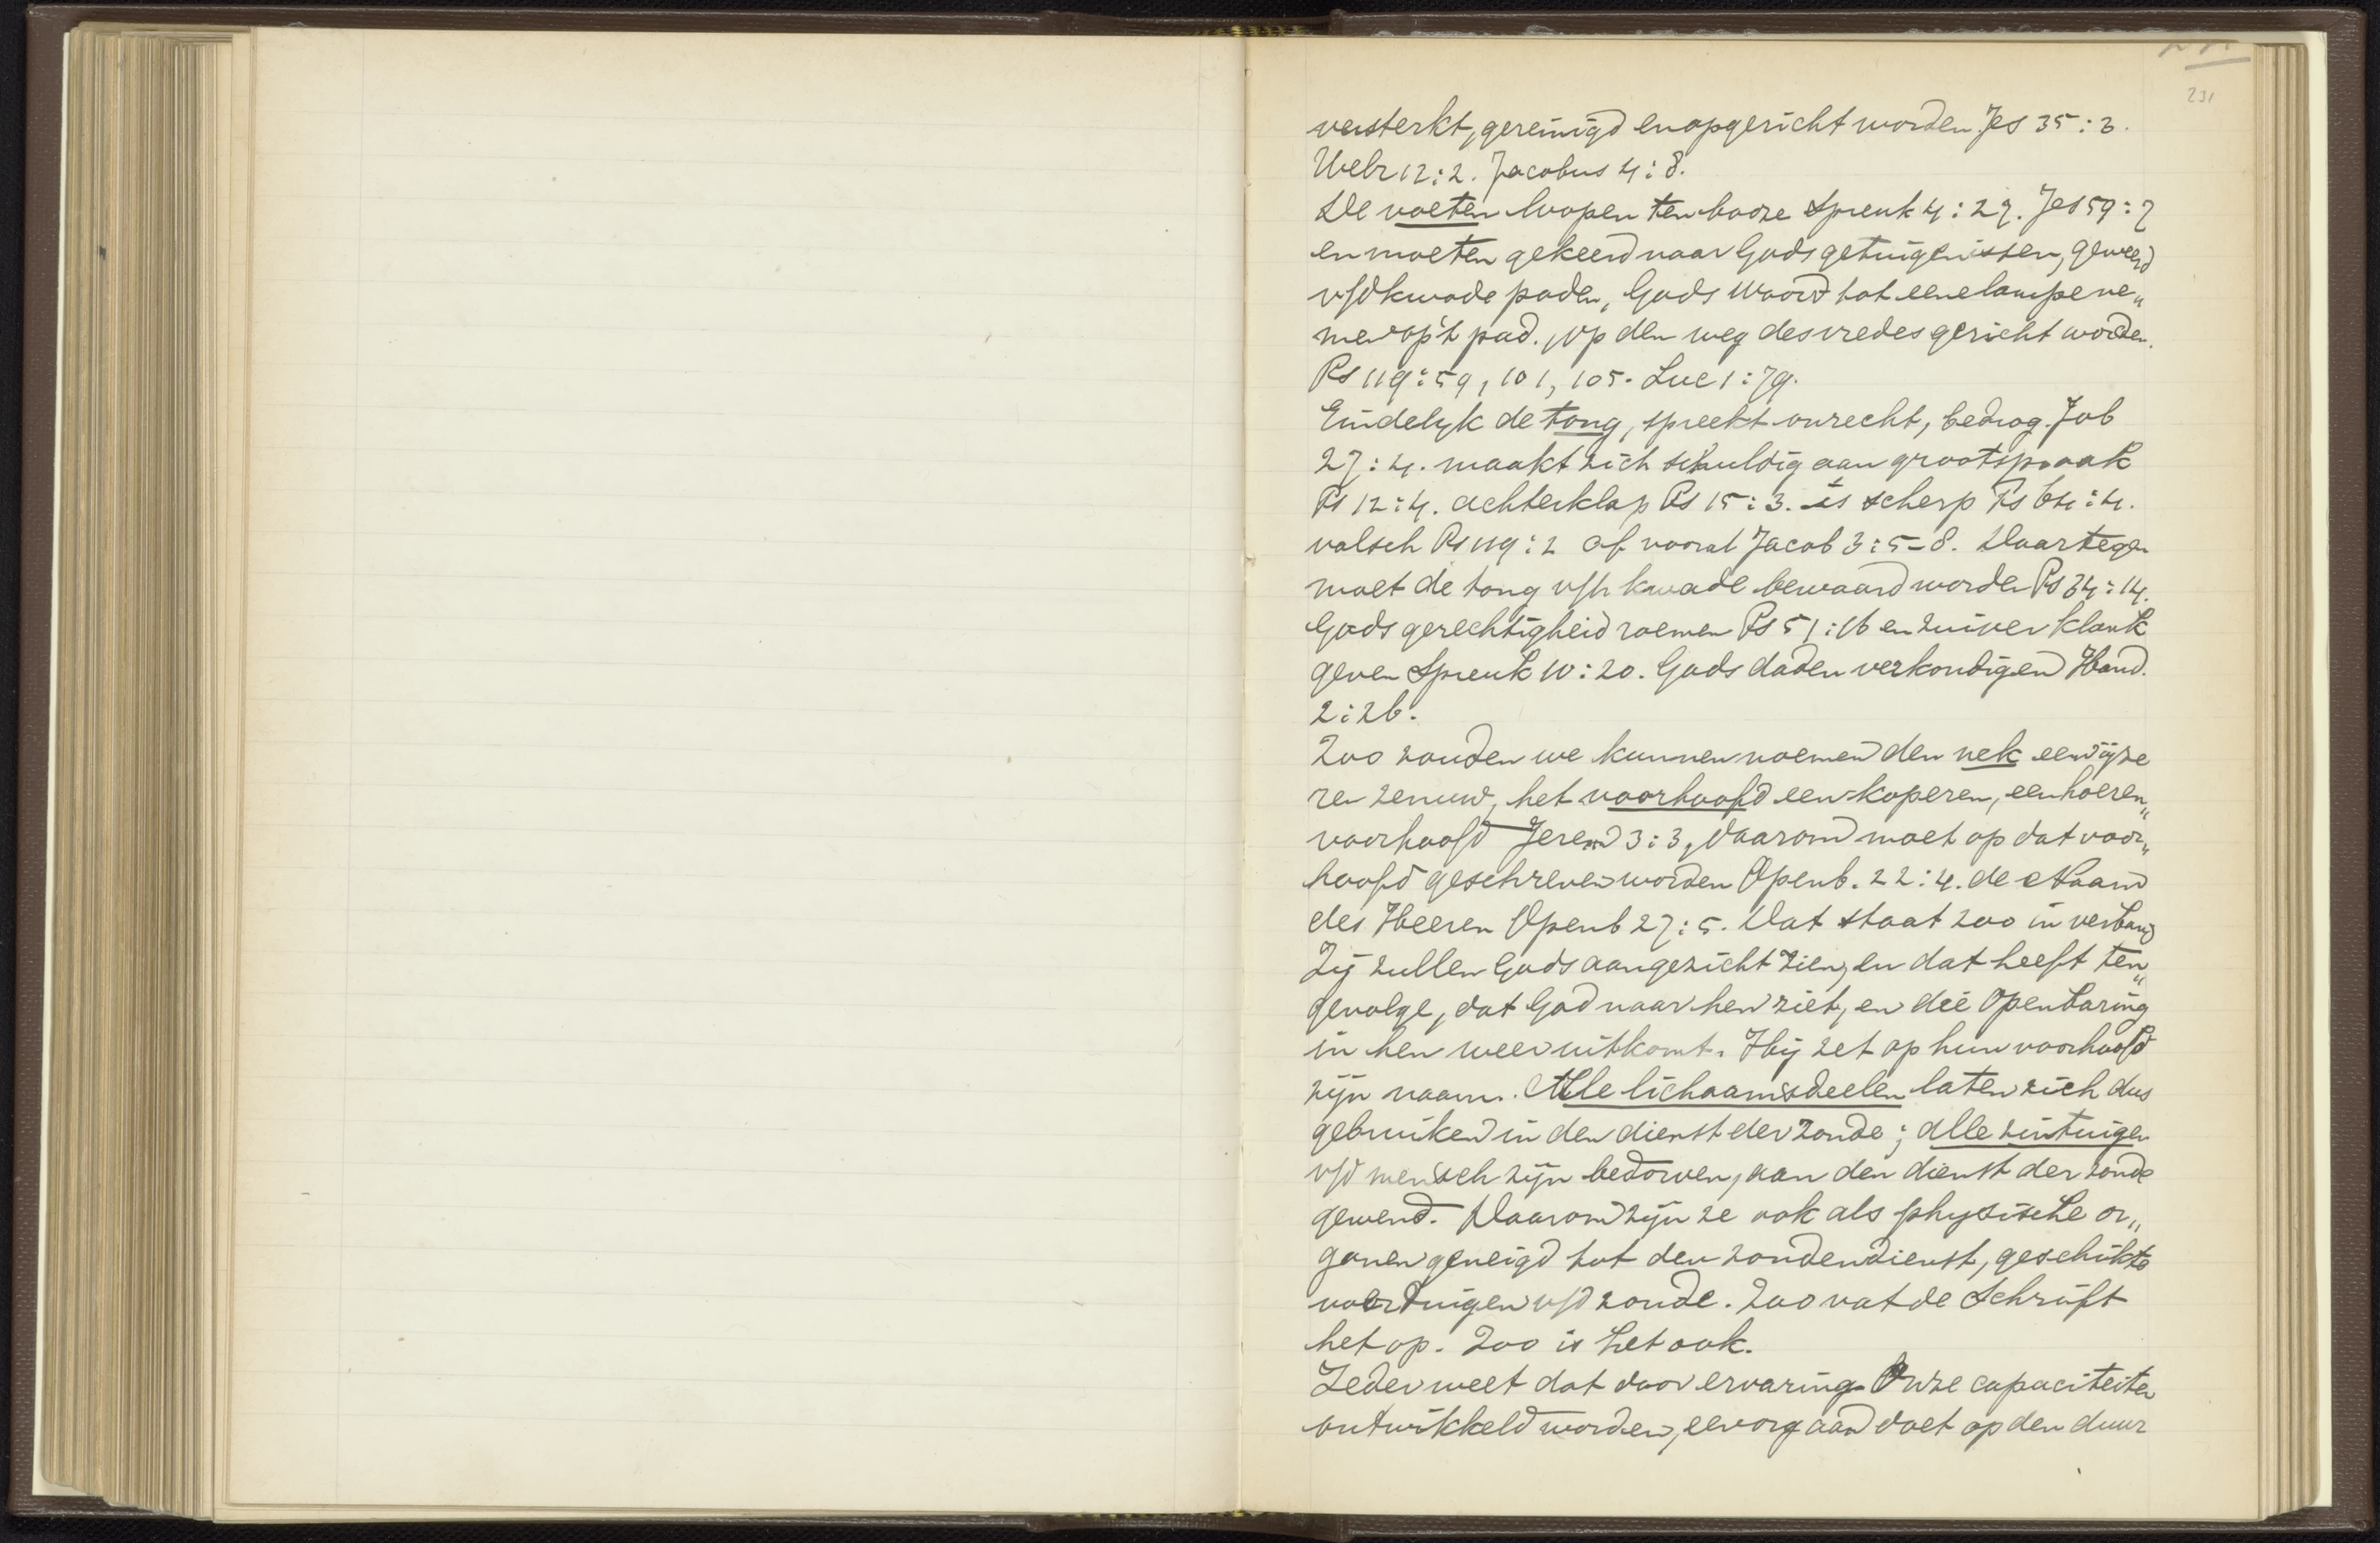 231
versterkt, gereinigd en opgericht worden Jes 35 : 3.
Hebr 12 : 2. Jacobus 4 : 8.
De voeten loopen ten booze Spreuk 4 : 27. Jes 59 : 7
en moeten gekeerd naar Gods getuigenissen, geweerd
v/d kwade paden, Gods Woord tot eene lamp ene„
men op 't pad, op den weg des vredes gericht worden.
Ps 119 : 59, 101, 105. Luc 1 : 79.
Eindelyk de tong, spreekt onrecht, bedrog. Job
27 : 4. maakt zich schuldig aan grootspraak
Ps 12 : 4. achterklap Ps 15 : 3. is scherp Ps 64 : 4.
valsch Ps 119 : 2 of vooral Jacob 3 : 5-8. Daartegen
moet de tong v/h kwade bewaard worden Ps 34 : 14.
Gods gerechtigheid roemen Ps 51 : 16 en zuiver klank
geven Spreuk 10 : 20. Gods daden verkondigen Hand.
2 : 26.
Zoo zouden we kunnen noemen den nek een ijze
ren zenuw, het voorhoofd een koperen, een hoeren„
voorhoofd Jerem 3 : 3, daarom moet op dat voor„
hoofd geschreven worden Openb. 22 : 4. de Naam
des Heeren Openb 27 : 5. Dat staat zoo in verband
Zij zullen Gods aangezicht zien, en dat heeft ten„
gevolge, dat God naar hen ziet, en die Openbaring
in hen weer uitkomt. Hij zet op hun voorhoofd
zijn naam. Alle lichaamsdeelen laten zich dus
gebruiken in den dienst der zonde; alle zintuigen
v/d mensch zijn bedorven, aan den dienst der zonde
gewend. Daarom zijn ze ook als physische or„
ganen geneigd tot den zondendienst, geschikte
voertuigen v/d zonde. Zoo vat de Schrift
het op. Zoo is het ook.
Ieder weet dat door ervaring. Onze capaciteiten
ontwikkeld worden, een orgaan doet op den duur